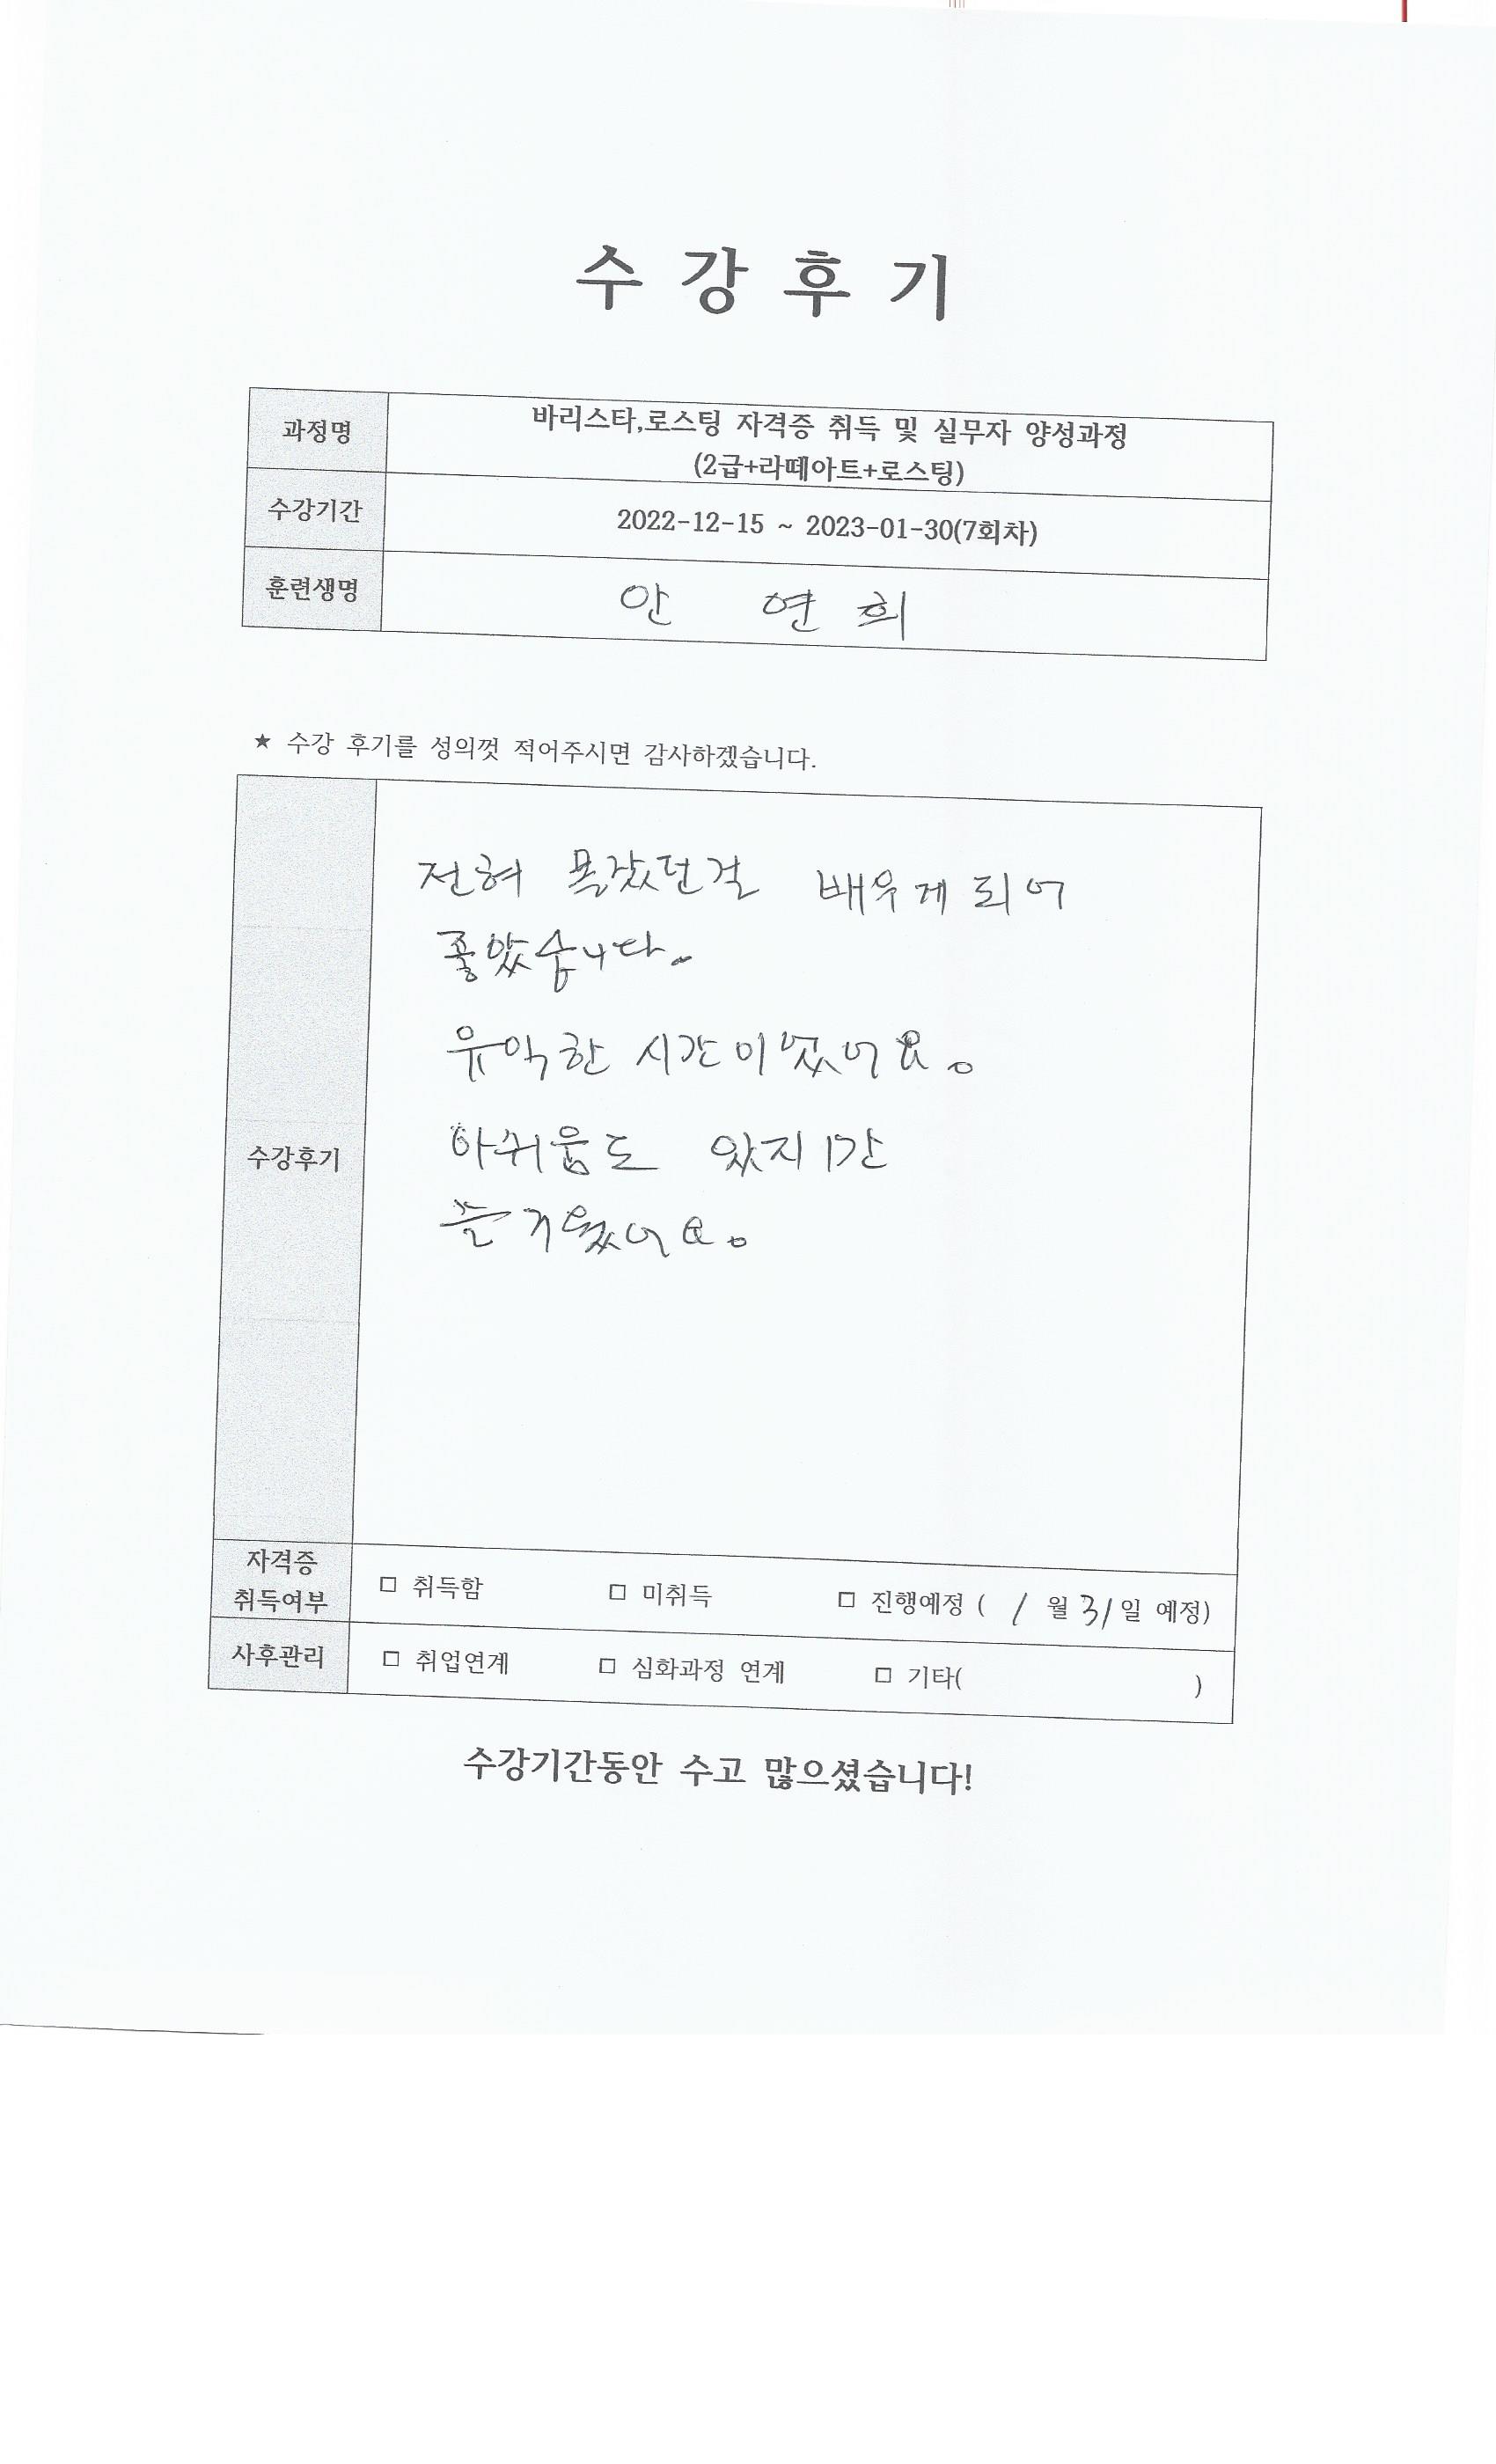 수 강 후 기
과정명
바리스타,로스팅 자격증 취득 및 실무자 양성과정
(2급+라떼아트+로스팅)
수강기간
2022-12-15 ~ 2023-01-30(7회차)
훈련생명
안 연희
★ 수강 후기를 성의껏 적어주시면 감사하겠습니다.
수강후기
전혀 몰랐던걸 배우게 되어
좋았습니다.
유익한 시간이었어요.
아쉬움도 있지만
즐거웠어요.
자격증
취득여부
□ 취득함 □ 미취득 □ 진행예정 ( 1 월 31 일 예정)
사후관리
□ 취업연계 □ 심화과정 연계 □ 기타( )
수강기간동안 수고 많으셨습니다!